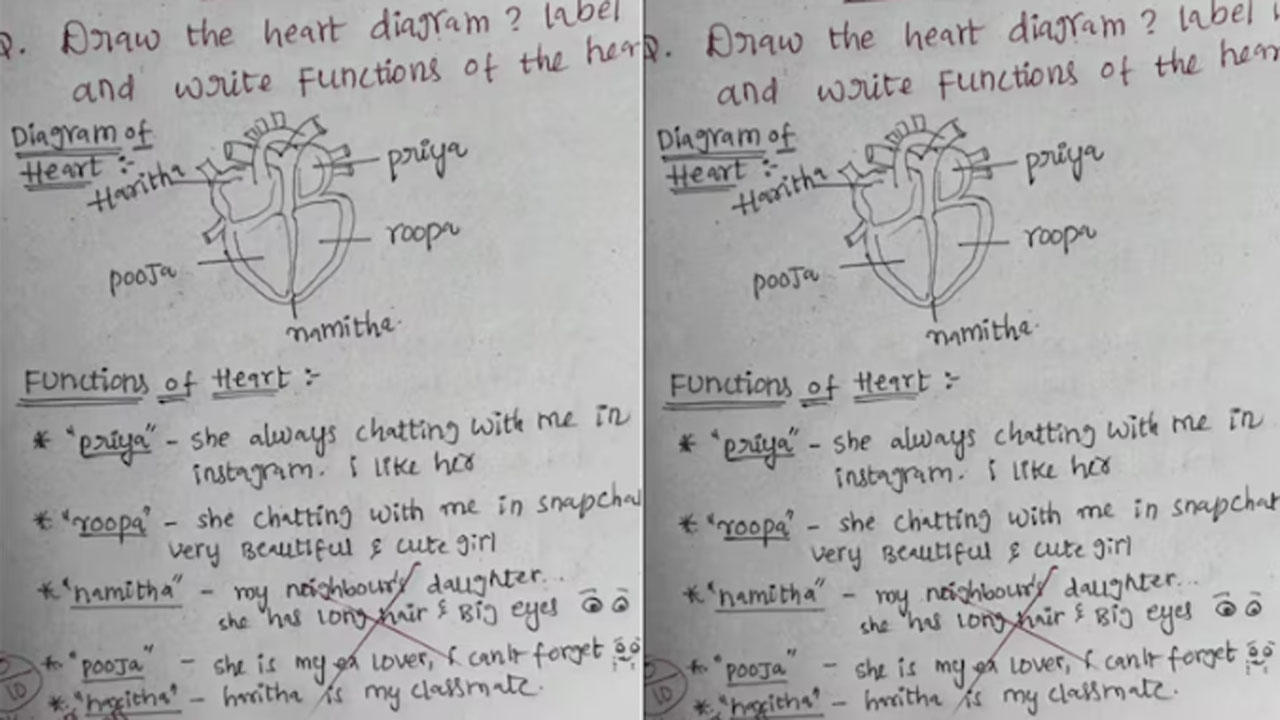 Q. Draw the heart diagram ? label
and write Functions of the hear
Diagram of
Heart :-
Haritha
priya
roopa
pooja
namitha.
Functions of Heart :-
* "priya" - she always chatting with me in
instagram. i like her
* "roopa" - she chatting with me in snapcha
very Beautiful & cute girl
* "namitha" - my neighbour's daughter...
she has long hair & Big eyes
* "pooja" - she is my ex lover, i can't forget
* "haritha" - haritha is my classmate.
10
Q. Draw the heart diagram ? label
and write Functions of the hear
Diagram of
Heart :-
Haritha
priya
roopa
pooja
namitha.
Functions of Heart :-
* "priya" - she always chatting with me in
instagram. i like her
* "roopa" - she chatting with me in snapchat
very Beautiful & cute girl
* "namitha" - my neighbour's daughter...
she has long hair & Big eyes
* "pooja" - she is my ex lover, i can't forget
* "haritha" - haritha is my classmate.
10